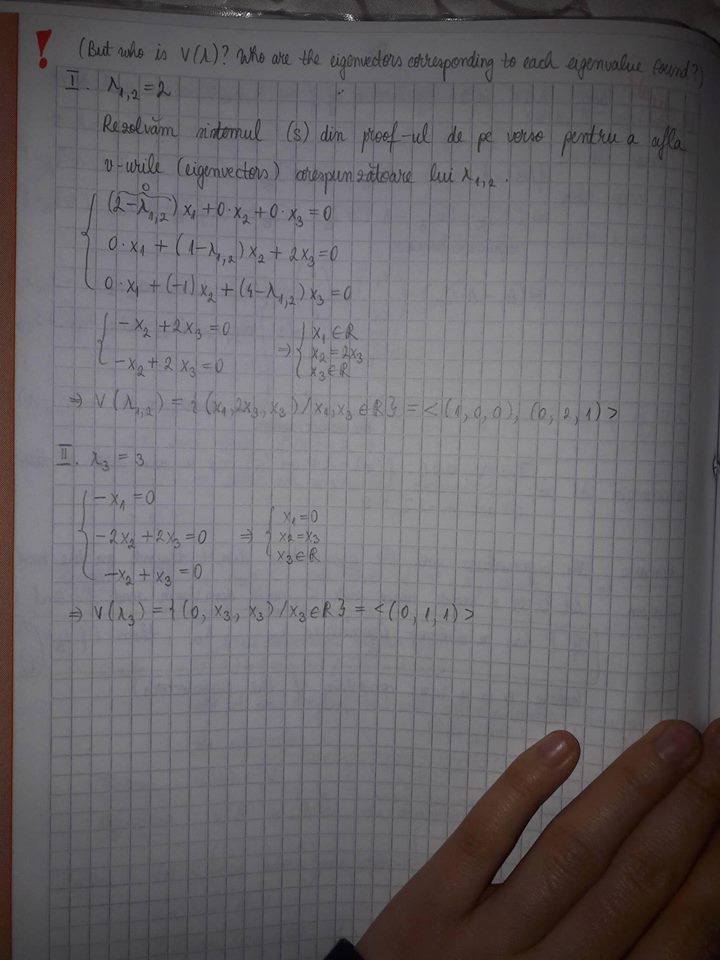 ! (But who is V(λ)? Who are the eigenvectors corresponding to each eigenvalue found?)
I. λ₁,₂ = 2
Rezolvăm sistemul (S) din proof-ul de pe verso pentru a afla
v-urile (eigenvectors) corespunzătoare lui λ₁,₂.
(2-λ₁,₂)x₁ + 0·x₂ + 0·x₃ = 0
0
0·x₁ + (1-λ₁,₂)x₂ + 2x₃ = 0
0·x₁ + (-1)x₂ + (4-λ₁,₂)x₃ = 0
{ -x₂ + 2x₃ = 0 ⇒ { x₁ ∈ ℝ
-x₂ + 2x₃ = 0 x₂ = 2x₃
x₃ ∈ ℝ
⇒ V(λ₁,₂) = {(x₁, 2x₃, x₃) / x₁, x₃ ∈ ℝ} = <(1,0,0), (0,2,1)>
II. λ₃ = 3
{ -x₁ = 0
-2x₂ + 2x₃ = 0 ⇒ { x₁ = 0
-x₂ + x₃ = 0 x₂ = x₃
x₃ ∈ ℝ
⇒ V(λ₃) = {(0, x₃, x₃) / x₃ ∈ ℝ} = <(0,1,1)>